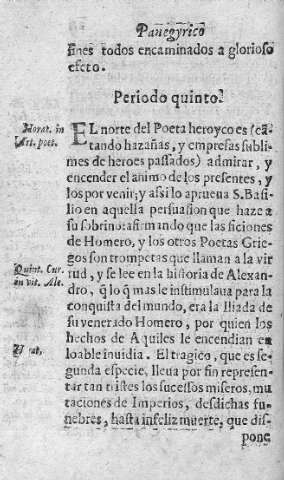 Panegyrico
fines todos encaminados a glorioso
efeto.
Periodo quinto.
Horat. in
Art. poet.
EL norte del Poeta heroyco es (cã-
tando hazañas, y empresas subli-
mes de heroes passados) admirar, y
encender el animo de los presentes, y
los por venir; y assi lo aprueua S. Basi-
lio en aquella persuasion que haze a
su sobrino: afirmando que las ficiones
de Homero, y los otros Poetas Grie-
gos son trompetas que llaman a la vir
Quint. Cur.
in vit. Ale.
tud, y se lee en la historia de Alexan-
dro, q̃ lo q̃ mas le instimulaua para la
conquista del mundo, era la Iliada de
su venerado Homero, por quien los
hechos de Aquiles le encendian en
loable inuidia. El tragico, que es se-
gunda especie, lleua por fin represen-
tar tan tristes los sucessos miseros, mu
taciones de Imperios, desdichas fu-
nebres, hasta infeliz muerte, que dis-
pone